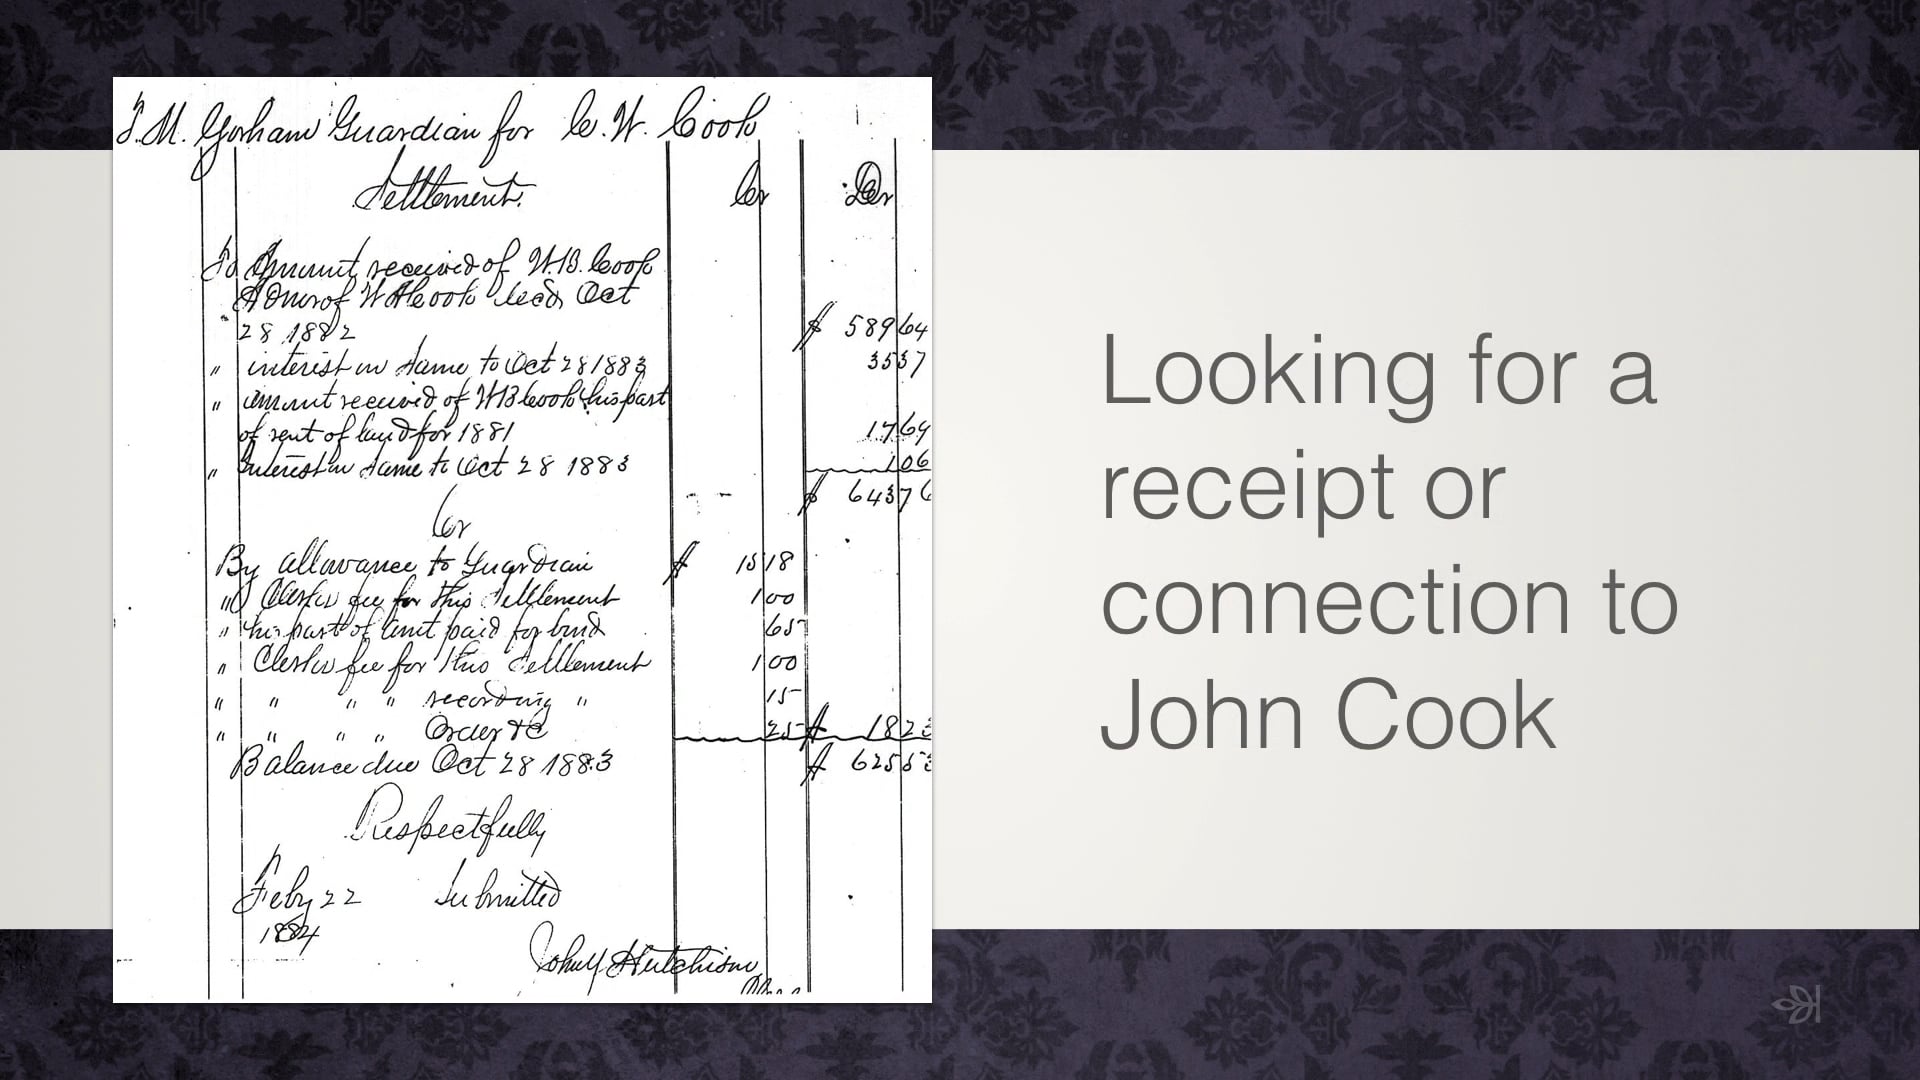 T. M. Gorham Guardian for C. W. Cook
Settlement.
Cr Dr
To Amount received of W. B. Cook
Admr of W A Cook decd Oct
28 1882 $ 589 64
" interest on same to Oct 28 1883 35 37
" amount received of W B Cook his part
of rent of land for 1881 17 69
" Interest on same to Oct 28 1883 1 06
$ 643 76
Cr
By allowance to Guardian $ 15 18
" Clerks fee for this Settlement 1 00
" his part of amt paid for bond 65
" Clerks fee for this Settlement 1 00
" " " " recording " 15
" " " " Order &c 25 $ 18 23
Balance due Oct 28 1883 $ 625 53
Respectfully
Feby 22 Submitted
1884
Hutchison
Looking for a
receipt or
connection to
John Cook